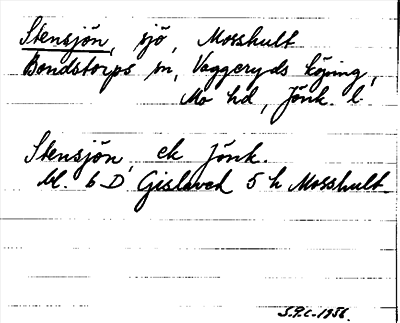 Stensjön, sjö, Mosshult
Bondstorps sn, Vaggeryds köping,
Mo hd, Jönk. l.
Stensjön, ek Jönk.
bl. 6 D Gislaved 5 h Mosshult
1956.